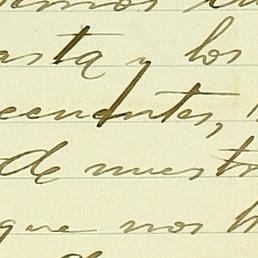 asta y los
cendentes,
de nuestr
que nos h